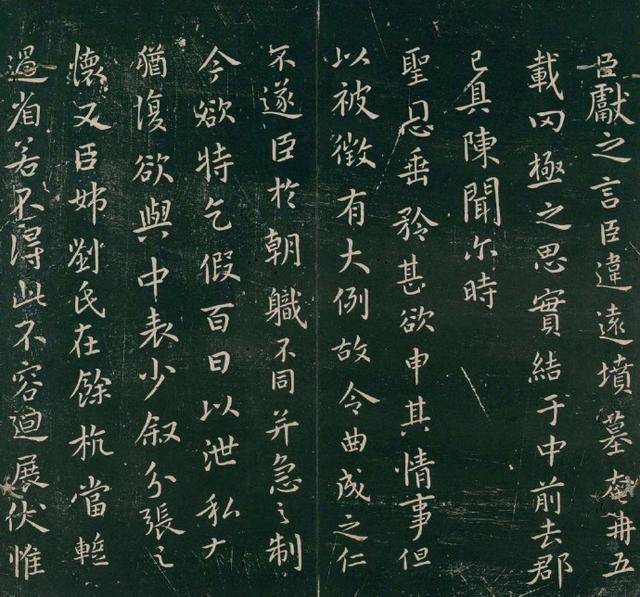 臣獻之言臣違遠墳墓奄冉五
載罔極之思實結于中前去郡
已具陳聞尓時
聖恩垂矜甚欲申其情事但
以被徵有大例故令曲成之仁
不遂臣於朝軄不同并急之制
今欲特乞假百日以泄私
猶復欲與中表少叙分張之
懷又臣姊劉氏在餘杭當蹔
過省若不得此不容迴展伏惟